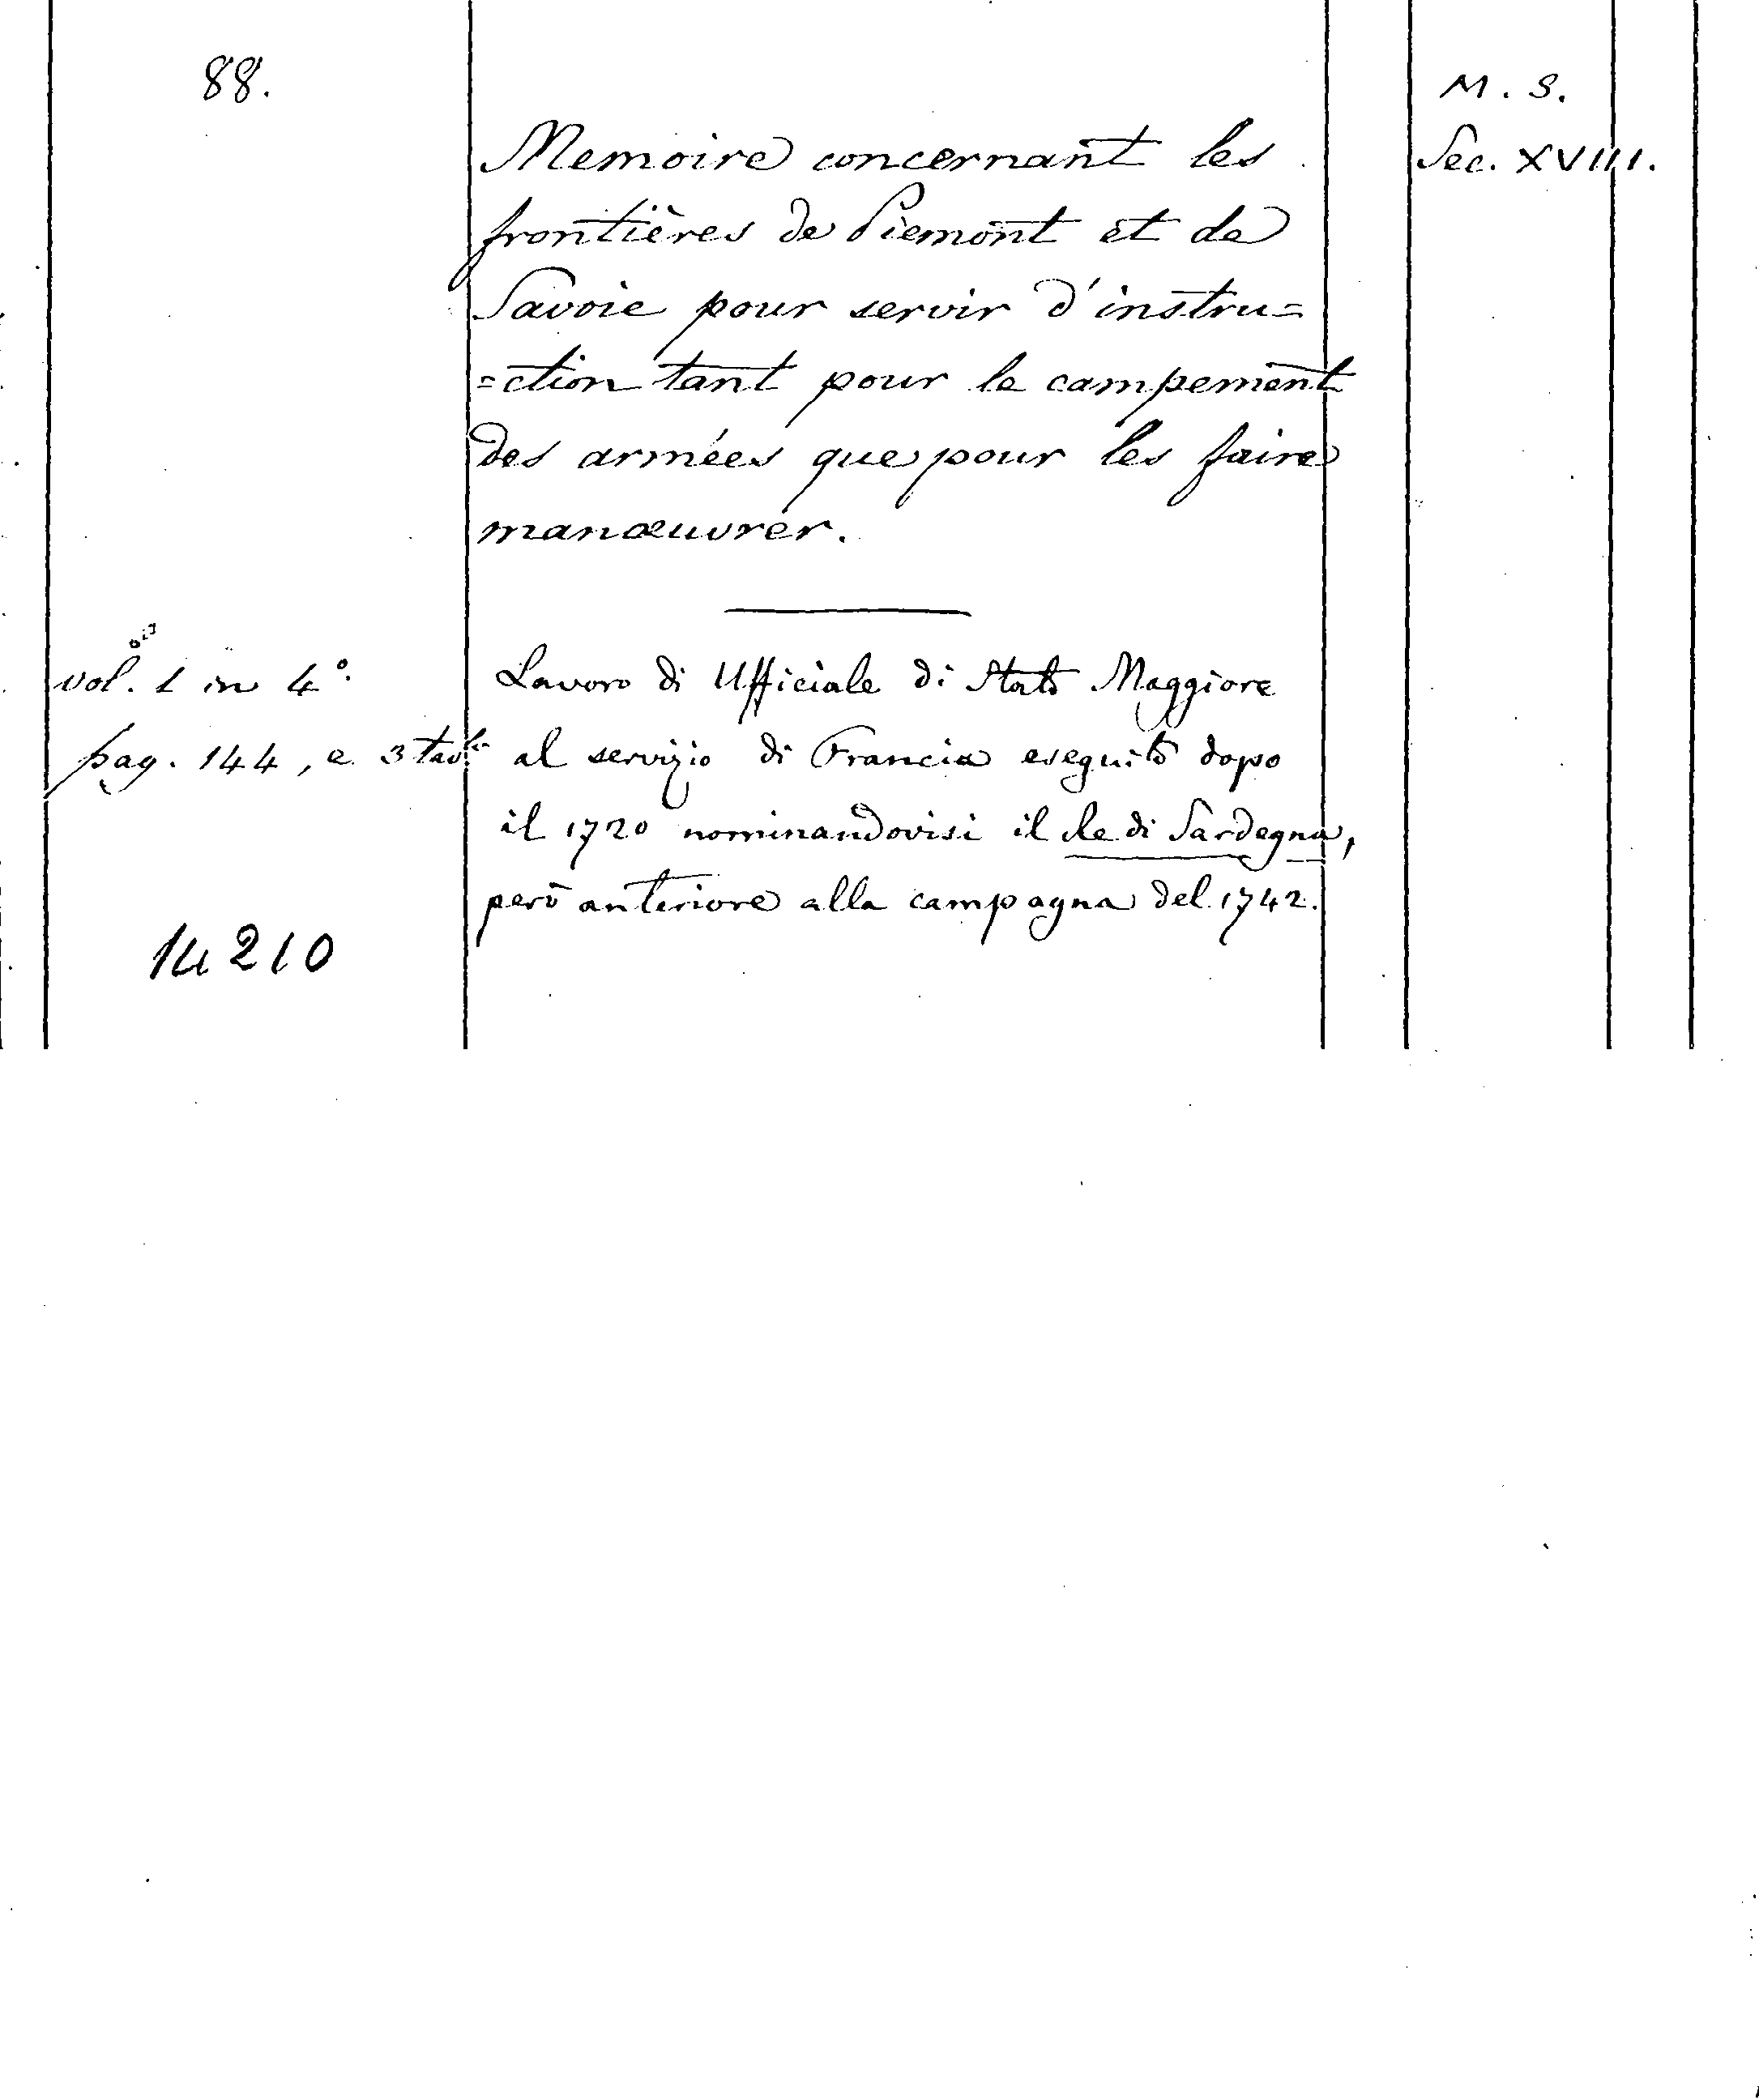 88.
M. S.
Sec. XVIII.
Memoire concernant les
frontières de Piemont et de
Savoie pour servir d'instru=
=ction tant pour le campement
des armées que pour les faire
manœuvrer.
vol. 1 in 4°.
pag. 144, e 3 tavle
Lavoro di Ufficiale di Stato Maggiore
al servizio di Francia eseguito dopo
il 1720 nominandovisi il Re di Sardegna,
però anteriore alla campagna del 1742.
14210